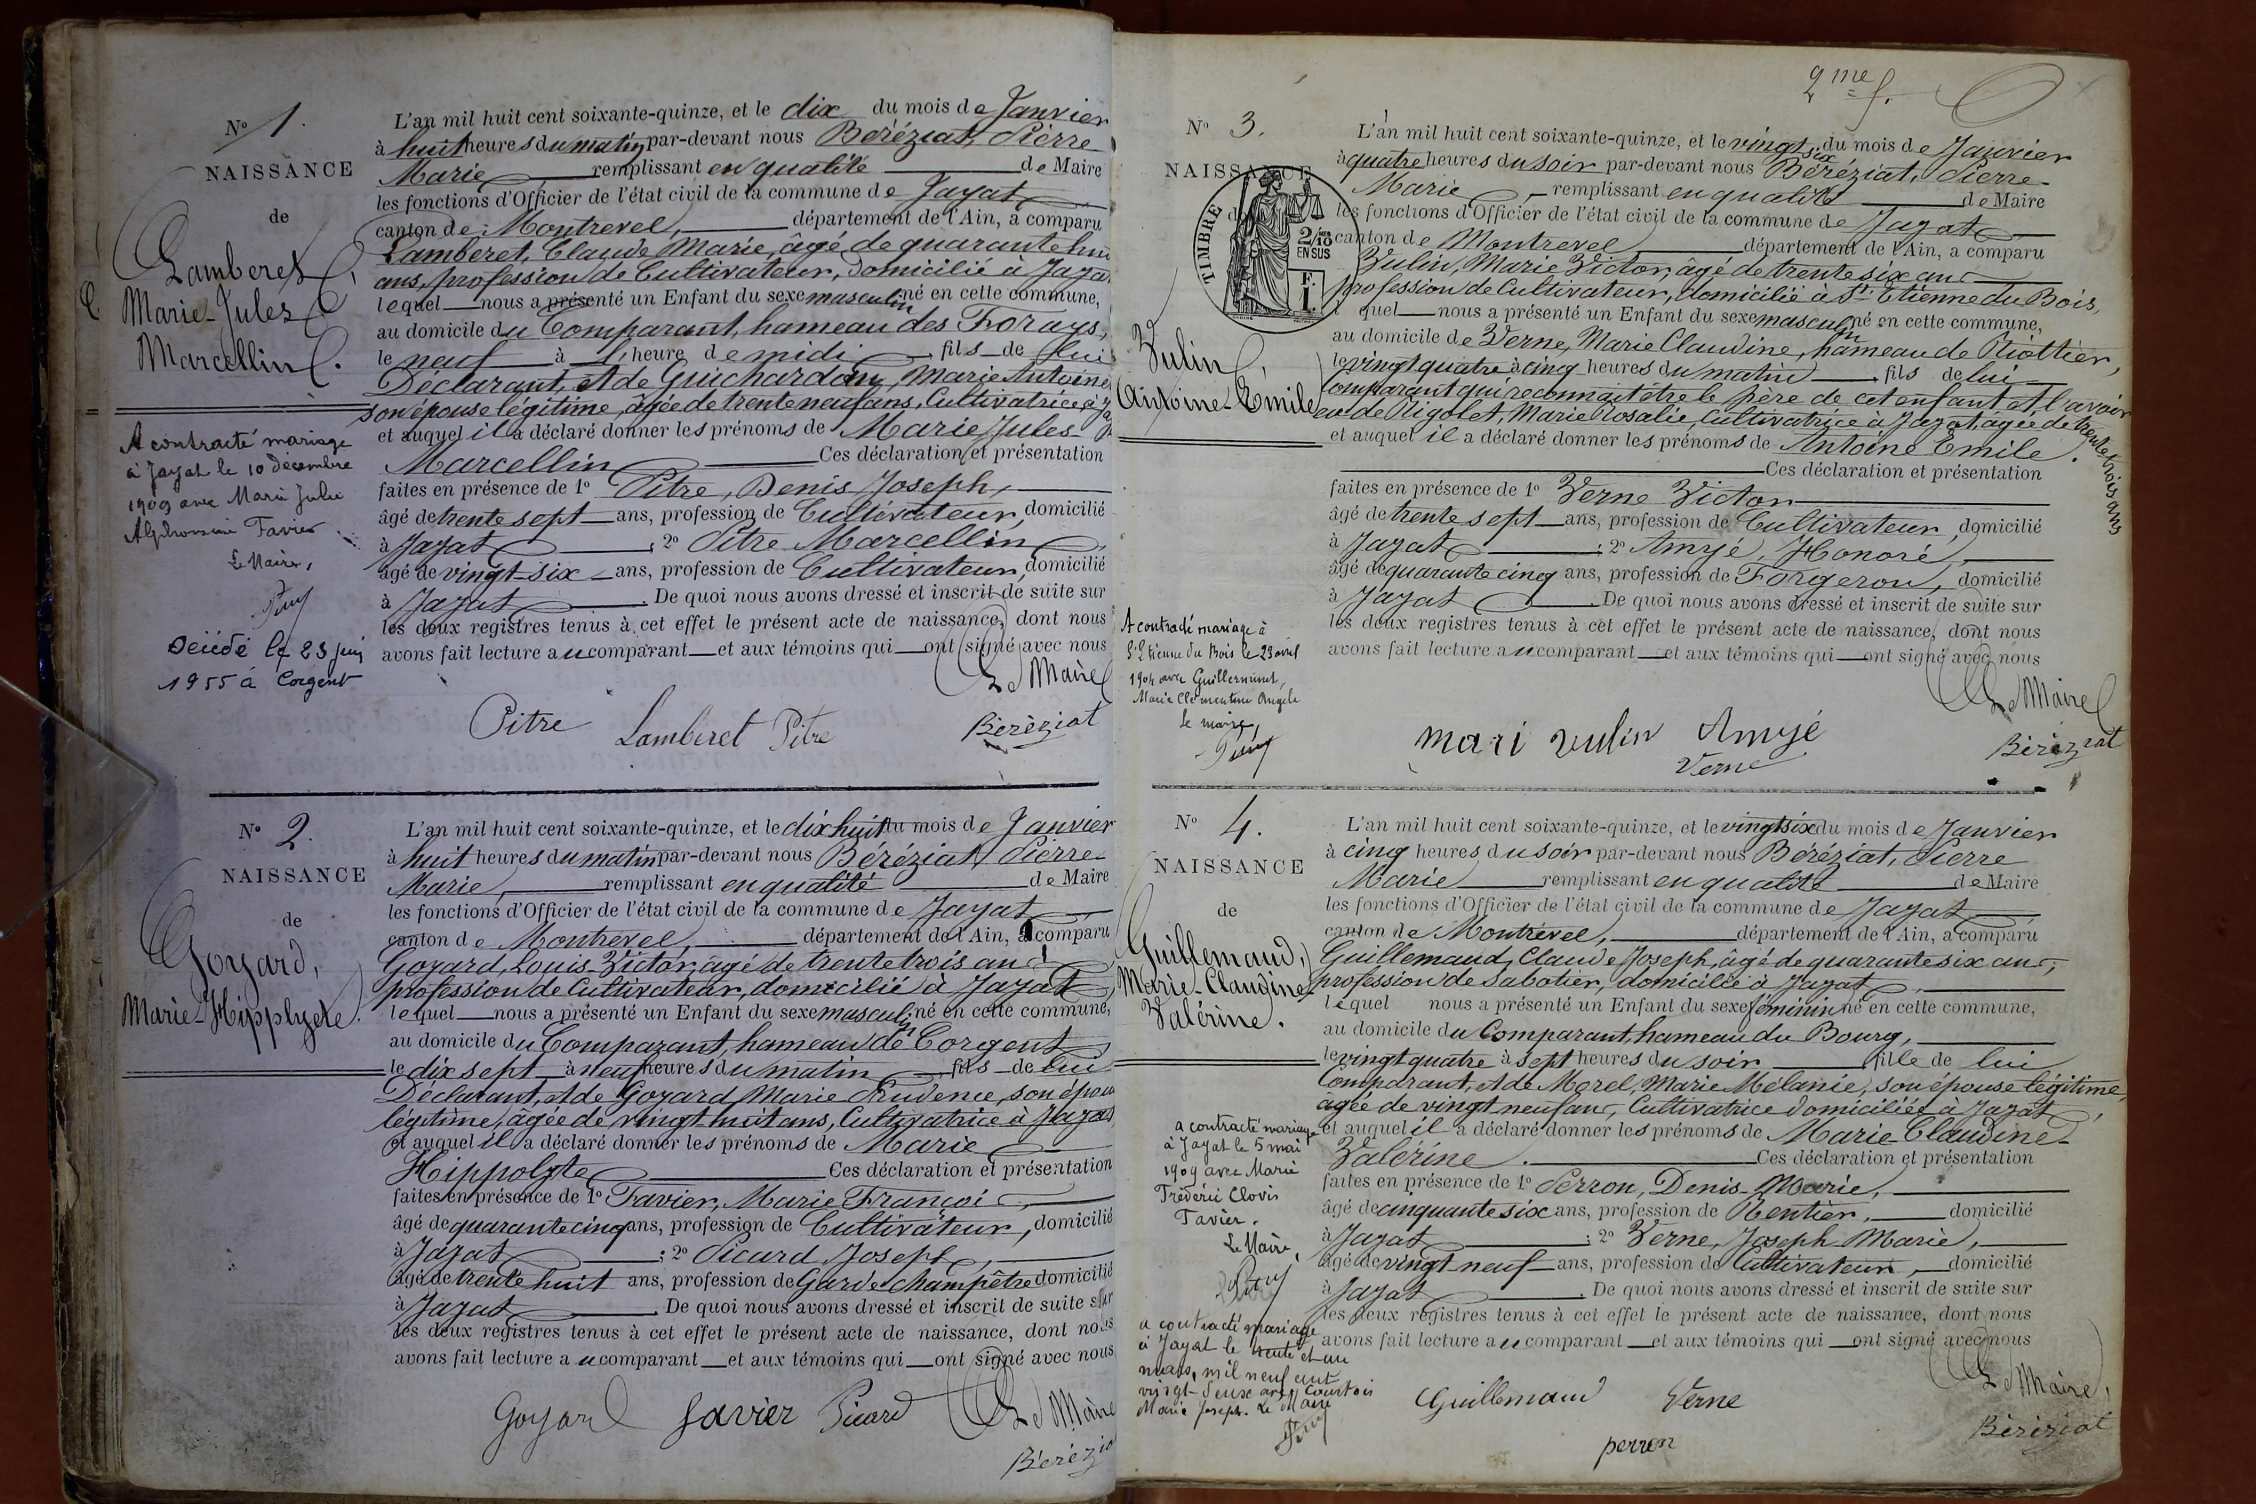 N° 1.
NAISSANCE
de
Lamberet,
Marie-Jules
Marcellin.
A contracté mariage
à Jayat le 10 décembre
1909 avec Marie Julie
Alphonsine Favier
Le Maire,
Décédé le 23 juin
1955 à Corgent
L'an mil huit cent soixante-quinze, et le dix du mois de Janvier
à huit heures du matin par-devant nous Beréziat, Pierre
Marie remplissant en qualité de Maire
les fonctions d'Officier de l'état civil de la commune de Jayat
canton de Montrevel, département de l'Ain, a comparu
Lamberet, Claude Marie, âgé de quarante huit
ans, profession de Cultivateur, domicilié à Jayat
lequel nous a présenté un Enfant du sexe masculin né en cette commune,
au domicile du Comparant, hameau des Forays,
le neuf à 1 heure de midi fils de lui
Déclarant, et de Guichardon, Marie Antoine
son épouse légitime, âgée de trente neuf ans, Cultivatrice à
et auquel il a déclaré donner les prénoms de Marie Jules
Marcellin Ces déclaration et présentation
faites en présence de 1° Pitre, Denis Joseph,
âgé de trente sept ans, profession de Cultivateur, domicilié
à Jayat ; 2° Pitre Marcellin
âgé de vingt-six ans, profession de Cultivateur, domicilié
à Jayat. De quoi nous avons dressé et inscrit de suite sur
les deux registres tenus à cet effet le présent acte de naissance, dont nous
avons fait lecture au comparant et aux témoins qui ont signé avec nous
Le Maire
Pitre Lamberet Pitre Béréziat
N° 2.
NAISSANCE
de
Goyard,
Marie-Hipplyete.
L'an mil huit cent soixante-quinze, et le dix huit du mois de Janvier
à huit heures du matin par-devant nous Béréziat Pierre
Marie, remplissant en qualité de Maire
les fonctions d'Officier de l'état civil de la commune de Jayat
canton de Montrevel, département de l'Ain, a comparu
Goyard, Louis-Victor, âgé de trente trois ans
profession de Cultivateur, domicilié à Jayat
lequel nous a présenté un Enfant du sexe masculin né en cette commune,
au domicile du Comparant, hameau de Corgent
le dix sept à neuf heures du matin fils de lui
Déclarant, et de Goyard Marie Prudence, son épouse
légitime, âgée de vingt huit ans, Cultivatrice à Jayat
et auquel il a déclaré donner les prénoms de Marie
Hippolyte Ces déclaration et présentation
faites en présence de 1° Favier, Marie François,
âgé de quarante cinq ans, profession de Cultivateur, domicilié
à Jayat ; 2° Picard, Joseph,
âgé de trente huit ans, profession de Garde champêtre domicilié
à Jayat. De quoi nous avons dressé et inscrit de suite sur
les deux registres tenus à cet effet le présent acte de naissance, dont nous
avons fait lecture au comparant et aux témoins qui ont signé avec nous
Le Maire
Goyard favier Picard
Béréziat
2me f.
N° 3.
NAISSANCE
de
TIMBRE
2/10
EN SUS
Vulin,
Antoine-Emile
A contracté mariage à
St Etienne du Bois le 23 avril
1904 avec Guilleminet,
Marie Clémentine Angèle
Le maire,
L'an mil huit cent soixante-quinze, et le vingt six du mois de Janvier
à quatre heures du soir par-devant nous Béréziat, Pierre
Marie remplissant en qualité de Maire
les fonctions d'Officier de l'état civil de la commune de Jayat
canton de Montrevel département de l'Ain, a comparu
Vulin, Marie Victor, âgé de trente six ans
profession de Cultivateur, domicilié à St Etienne du Bois,
lequel nous a présenté un Enfant du sexe masculin né en cette commune,
au domicile de Verne, Marie Claudine, hameau de Riottier,
le vingt quatre à cinq heures du matin fils de lui
Comparant qui reconnait être le père de cet enfant et l'avoir
eu de Rigolet, Marie Rosalie, Cultivatrice à Jayat, âgée de trente trois ans
et auquel il a déclaré donner les prénoms de Antoine Emile.
Ces déclaration et présentation
faites en présence de 1° Verne Victor
âgé de trente sept ans, profession de Cultivateur, domicilié
à Jayat ; 2° Amyé, Honoré,
âgé de quarante cinq ans, profession de Forgeron, domicilié
à Jayat. De quoi nous avons dressé et inscrit de suite sur
les deux registres tenus à cet effet le présent acte de naissance, dont nous
avons fait lecture au comparant et aux témoins qui ont signé avec nous
Le Maire
mari vulin Amyé
Verne Béréziat
N° 4.
NAISSANCE
de
Guillemaud,
Marie-Claudine-
Valérine.
a contracté mariage
à Jayat le 5 mai
1909 avec Marie
Fréderic Clovis
Favier.
Le Maire,
a contracté mariage
à Jayat le trente et un
mars, mil neuf cent
vingt-deux avec Courtois
Marie Joseph. Le Maire
L'an mil huit cent soixante-quinze, et le vingt six du mois de Janvier
à cinq heures du soir par-devant nous Béréziat, Pierre
Marie remplissant en qualité de Maire
les fonctions d'Officier de l'état civil de la commune de Jayat
canton de Montrevel, département de l'Ain, a comparu
Guillemaud, Claude Joseph, âgé de quarante six ans,
profession de Sabotier, domicilié à Jayat
lequel nous a présenté un Enfant du sexe féminin né en cette commune,
au domicile du Comparant, hameau du Bourg,
le vingt quatre à sept heures du soir fille de lui
Comparant, et de Morel, Marie Mélanie, son épouse légitime,
âgée de vingt neuf ans, Cultivatrice domiciliée à Jayat,
et auquel il a déclaré donner les prénoms de Marie-Claudine-
Valérine. Ces déclaration et présentation
faites en présence de 1° Perron, Denis-Marie,
âgé de cinquante six ans, profession de Rentier, domicilié
à Jayat ; 2° Verne, Joseph Marie,
âgé de vingt neuf ans, profession de Cultivateur, domicilié
à Jayat. De quoi nous avons dressé et inscrit de suite sur
les deux registres tenus à cet effet le présent acte de naissance, dont nous
avons fait lecture au comparant et aux témoins qui ont signé avec nous
Le Maire,
Guillemaud Verne
perron Béréziat